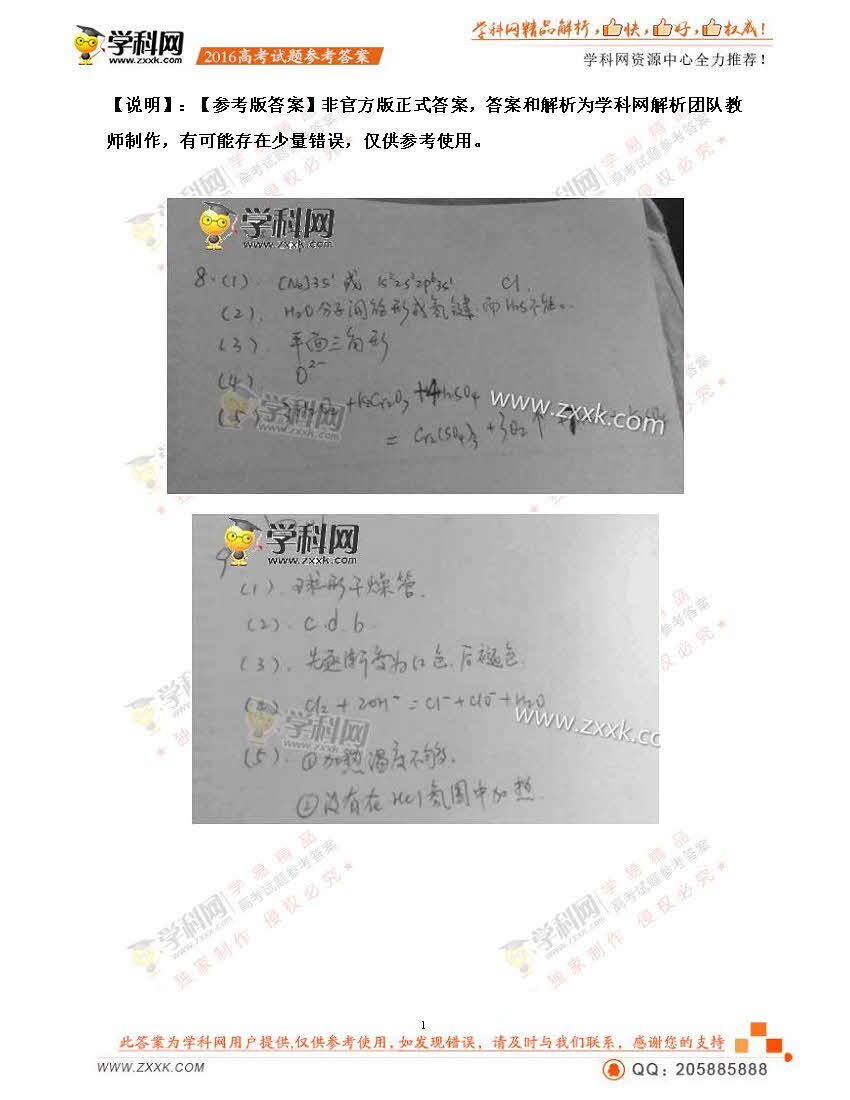 学科网
www.zxxk.com
2016高考试题参考答案
学科网精品解析,快,好,权威!
学科网资源中心全力推荐!
【说明】:【参考版答案】非官方版正式答案,答案和解析为学科网解析团队教
师制作,有可能存在少量错误,仅供参考使用。
学科网
www.zxxk.com
8.(1). [Ne]3s¹ 或 1s²2s²2p⁶3s¹ Cl.
(2). H₂O分子间能形成氢键.而H₂S不能。
(3). 平面三角形
(4). O²⁻
(5)
+K₂Cr₂O₇ +4H₂SO₄
www.zxxk.com
= Cr₂(SO₄)₃ +3O₂↑
学科网
www.zxxk.com
9
(1). 球形干燥管.
(2). c.d.b.
(3). 先逐渐变为红色.后褪色.
(4) Cl₂ + 2OH⁻ = Cl⁻ + ClO⁻ + H₂O
www.zxxk.cc
(5). ①加热温度不够.
②没有在HCl氛围中加热.
学科网 学易精品
www.zxxk.com 高考试题参考答案
独家制作 侵权必究
1
此答案为学科网用户提供,仅供参考使用,如发现错误,请及时与我们联系,感谢您的支持
WWW.ZXXK.COM
QQ: 205885888